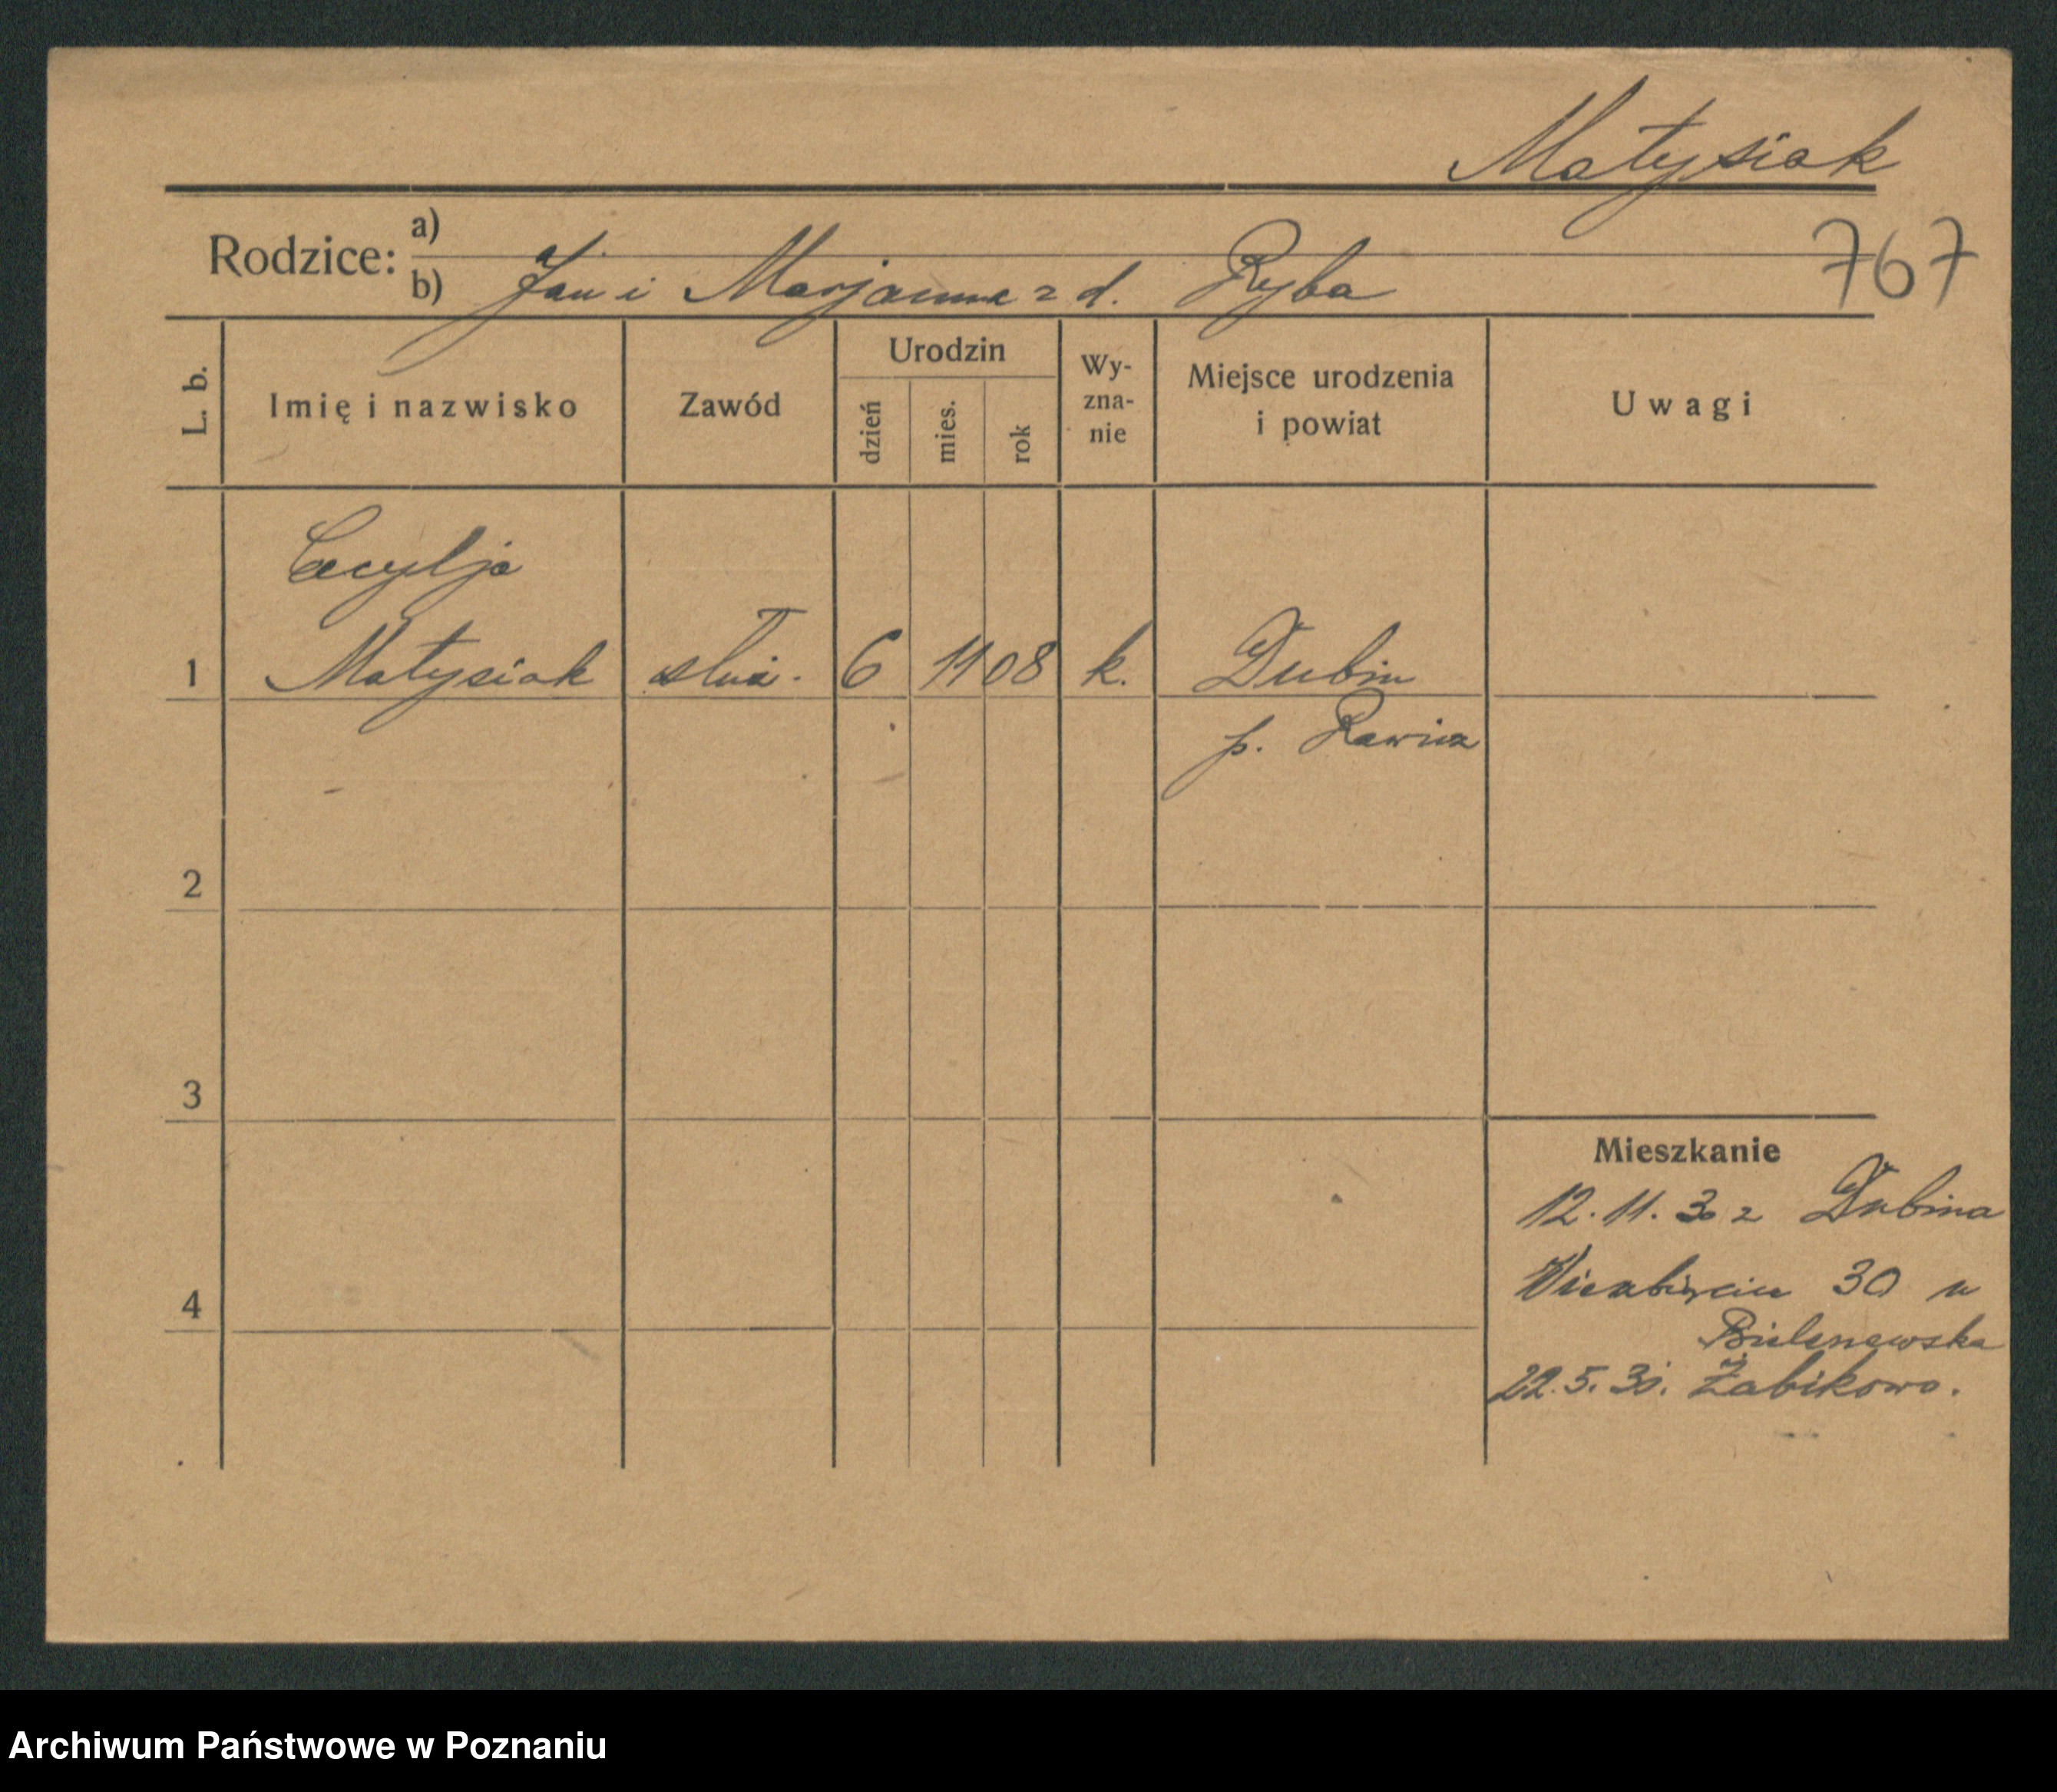 Matysiak
767
Rodzice: a)
b) Jan i Marjanna z d. Ryba
L. b.
Imię i nazwisko
Zawód
Urodzin
dzień
mies.
rok
Wy-
zna-
nie
Miejsce urodzenia
i powiat
Uwagi
Cecylja
1 Matysiak służ. 6 11 08 k. Dubin
p. Rawicz
2
3
4
Mieszkanie
12.11.30 z Dubina
30 u
22.5.31. Żabikowo.
Archiwum Państwowe w Poznaniu